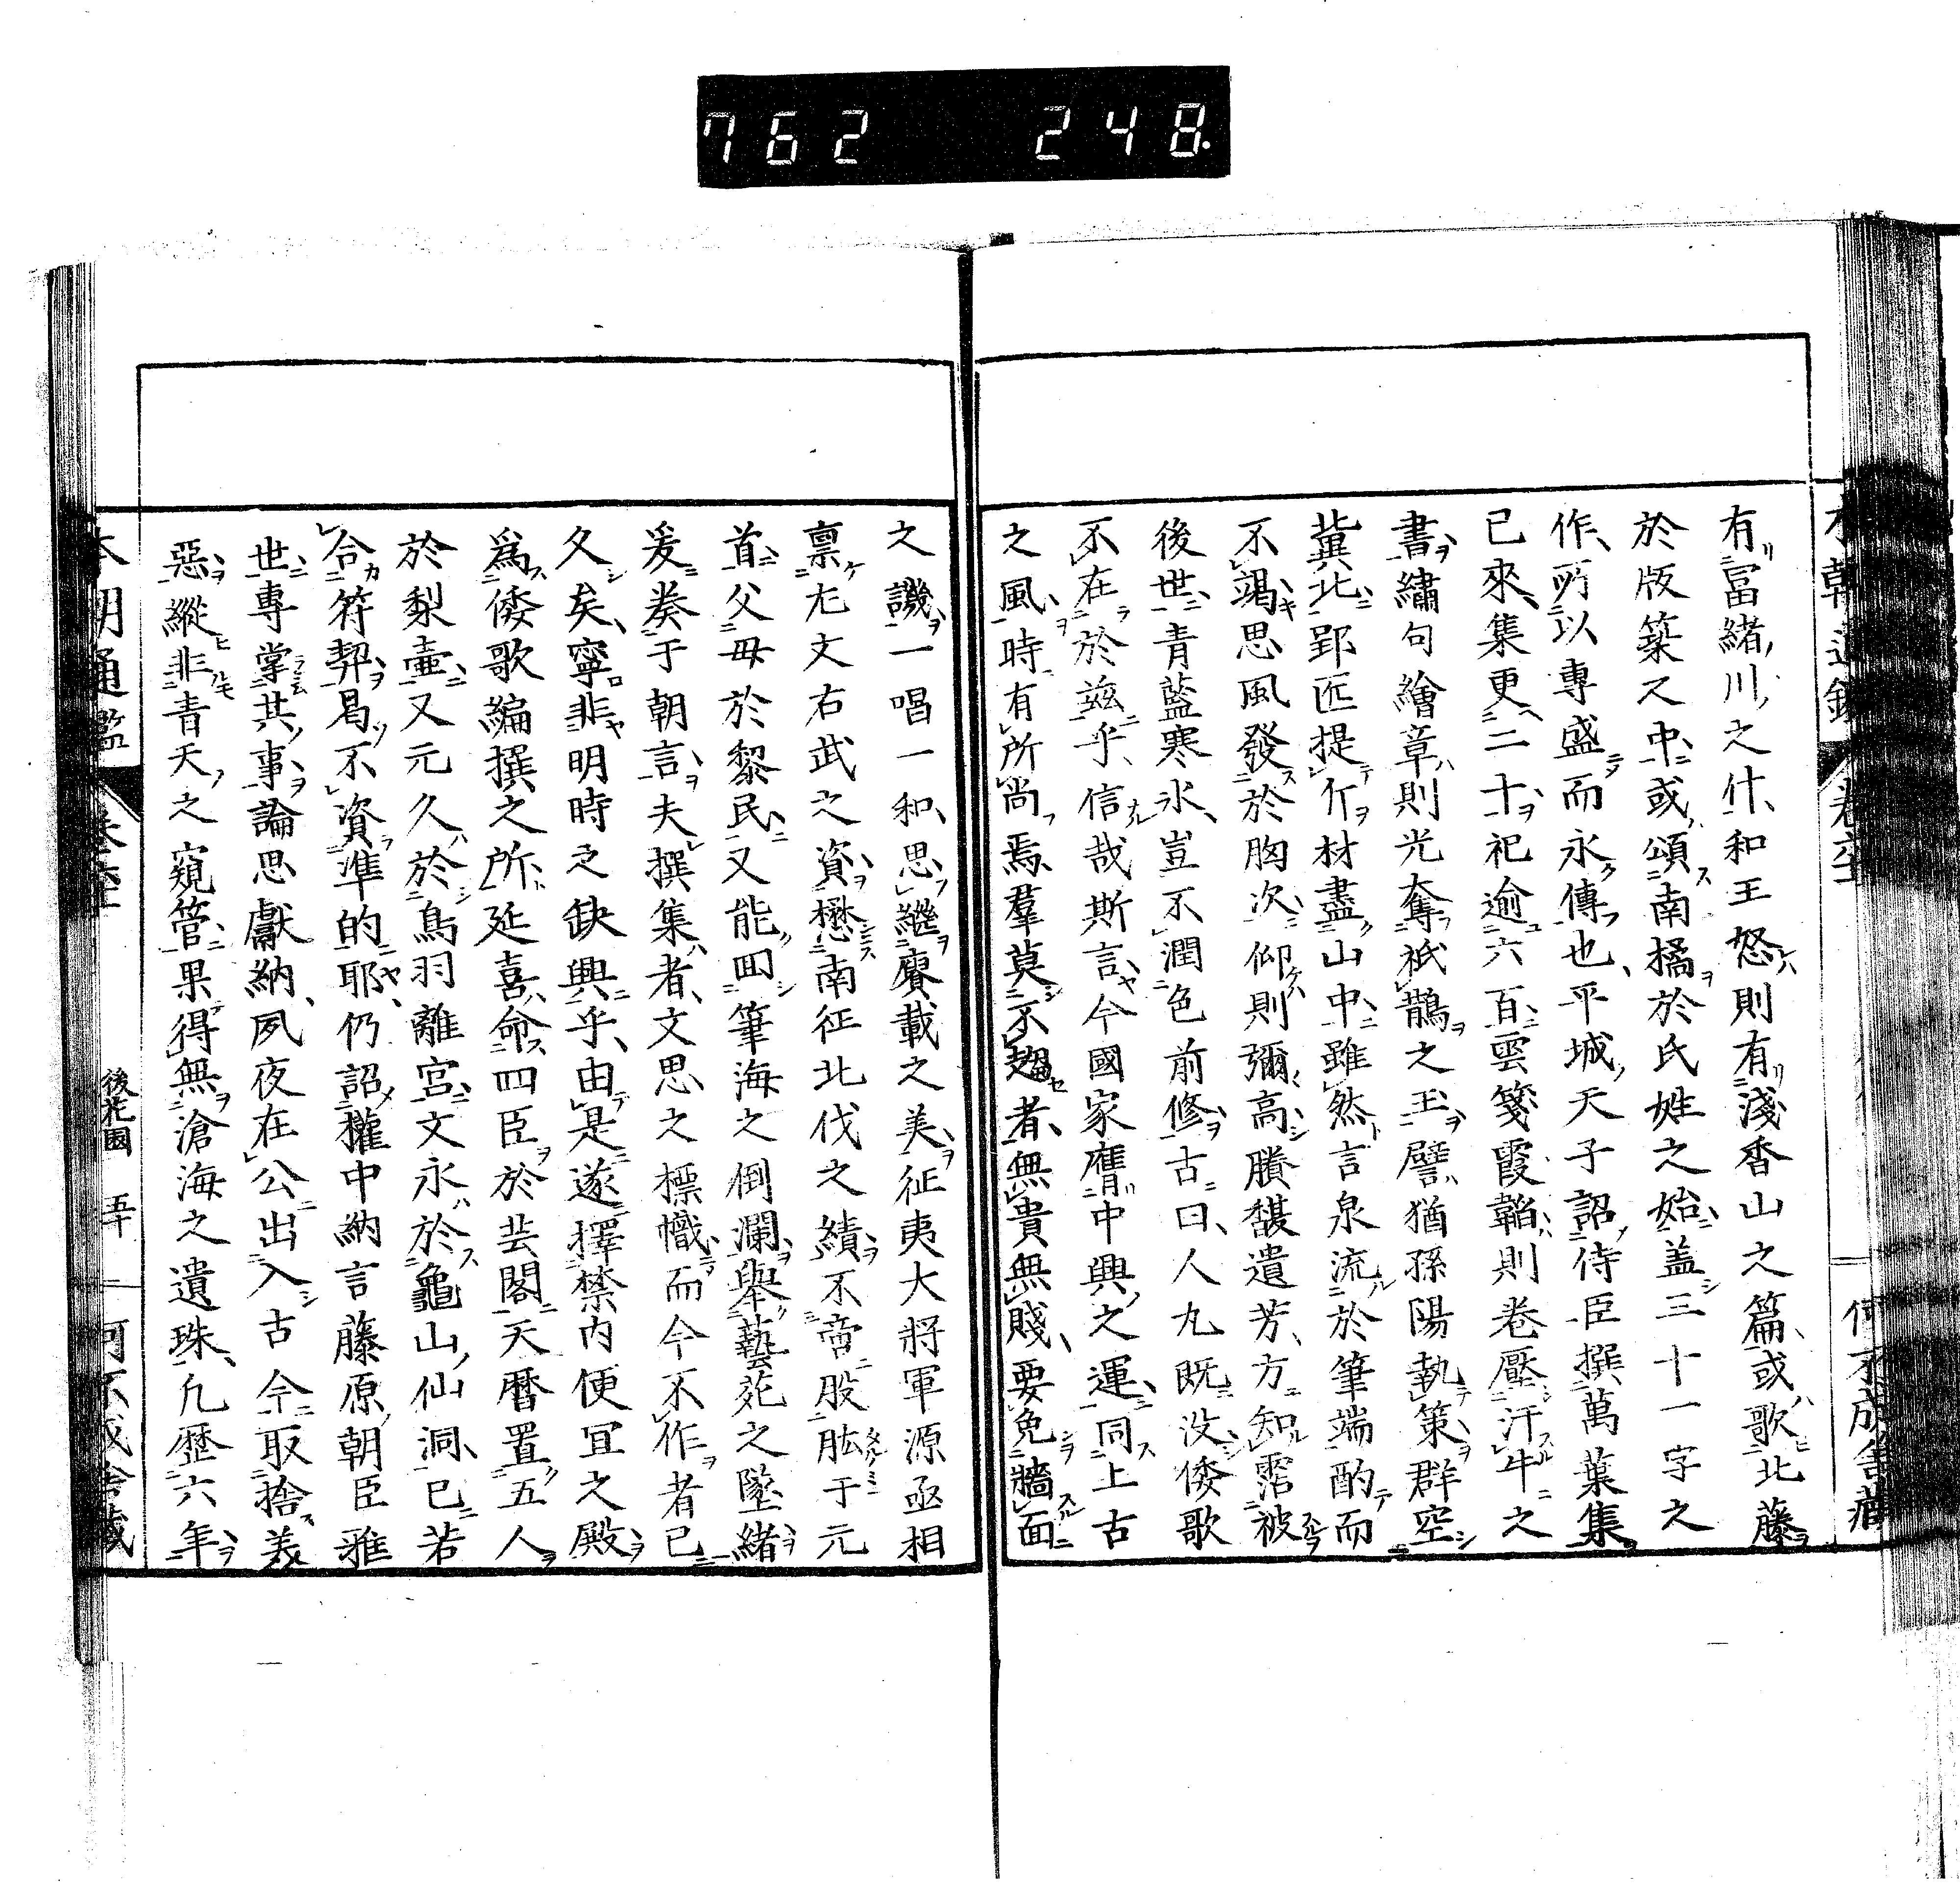 762 248.
有冨緒川之什和王怒則有淺香山之篇或歌北藤
於版築又中或頌南橘於氏姓之始盖三十一字之
作所以專盛而永傳也平城天子詔侍臣撰萬葉集
已來集更二十祀逾六百雲箋霞韜則卷壓汗牛之
書繡句繪章則光奪祇鵲之玉譬猶孫陽執策群空
冀北郢匠提斤材盡山中雖然言泉流於筆端酌而
不竭思風發於胸次仰則彌高賸馥遺芳方知霑被
後世青藍寒氷豈不潤色前修古曰人丸既沒倭歌
不在於茲乎信哉斯言今國家膺中興之運同上古
之風時有所尚焉羣莫不趨者無貴無賤要免牆面
之譏一唱一和思繼賡載之美征夷大將軍源丞相
禀尤文右武之資懋南征北伐之績不啻股肱于元
首父毋於黎民又能回筆海之倒瀾舉藝苑之墜緒
爰奏于朝言夫撰集者文思之標幟而今不作者已
久矣寧非明時之缺興乎由是遂擇禁内便冝之殿
爲倭歌編撰之所延喜命四臣於芸閣天曆置五人
於梨壷又元久於鳥羽離宮文永於龜山仙洞已若
合符契曷不資準的耶仍詔權中納言藤原朝臣雅
世專掌其事論思獻納夙夜在公出入古今取捨美
惡縱非青天之窺管果得無滄海之遺珠凢歷六年
本朝通鑑
後花園 五十
何不成舎藏